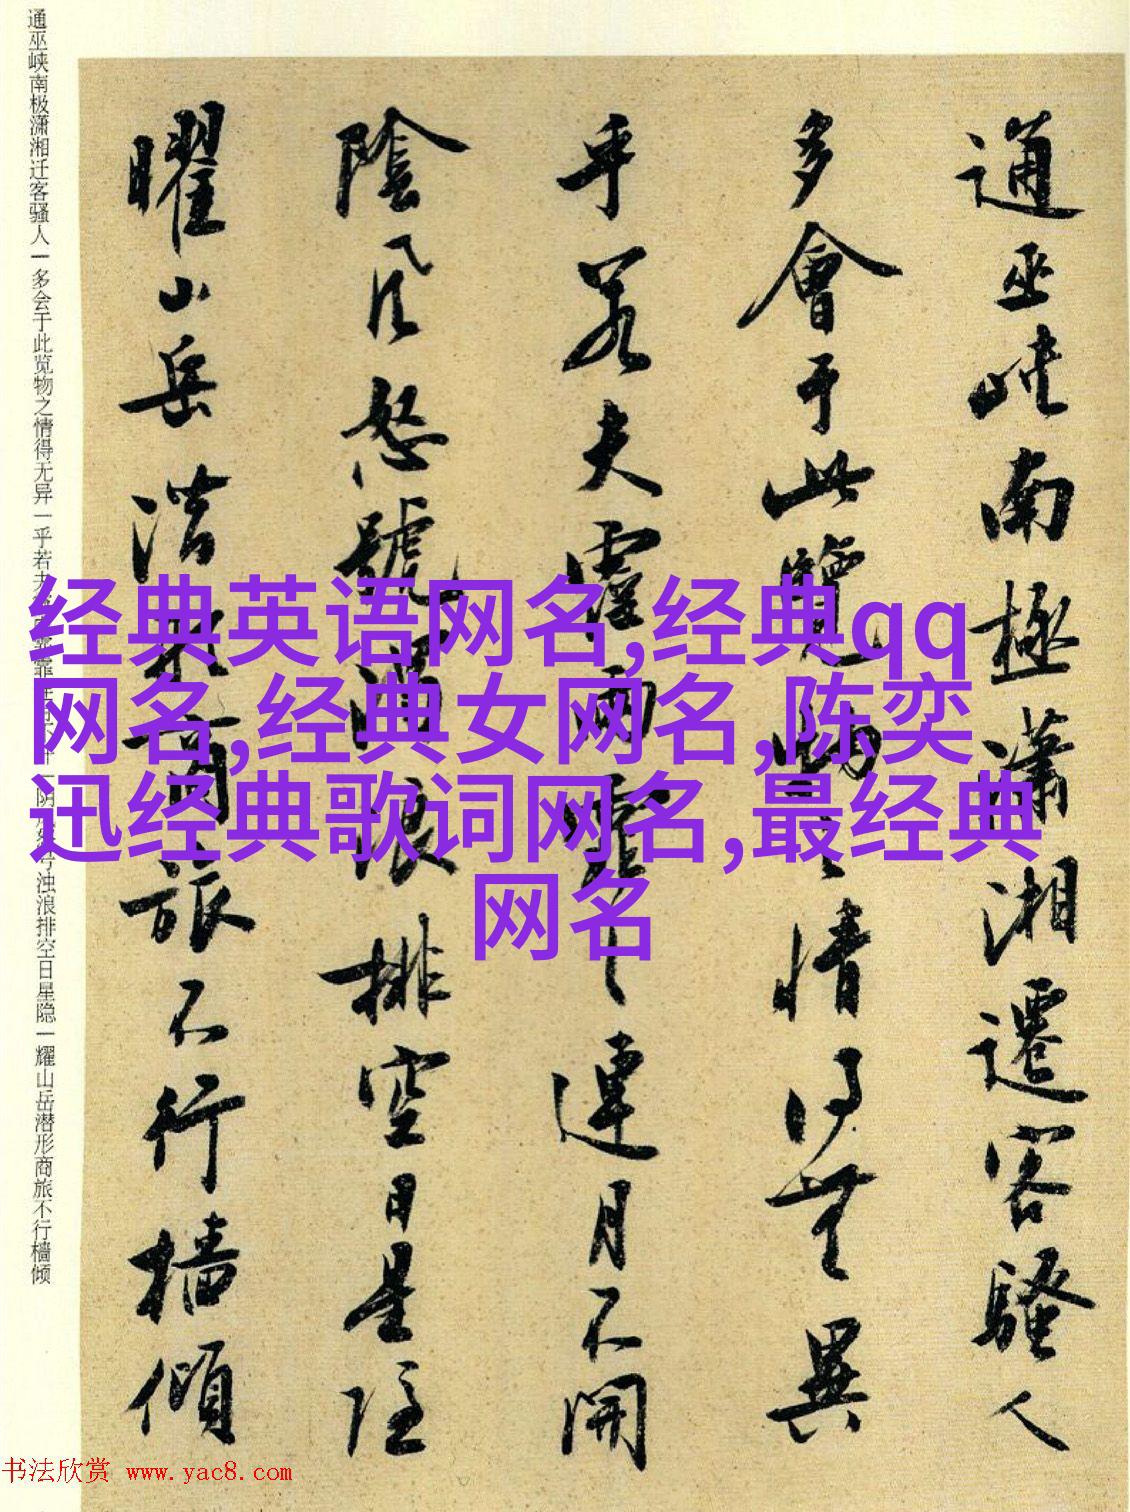 通巫峽南極瀟湘遷客騷人
多會于此覽物之情得無異
乎若夫霪雨霏〻連月不開
陰風怒號濁浪排空日星隱
曜山岳潛形商旅不行檣傾
通巫峡南极潇湘迁客骚人一多会于此览物之情得无异一乎若夫 浊浪排空日星隐一耀山岳潜形商旅不行樯倾
经典英语网名,经典qq
网名,经典女网名,陈奕
迅经典歌词网名,最经典
网名
书法欣赏 www.yac8.com